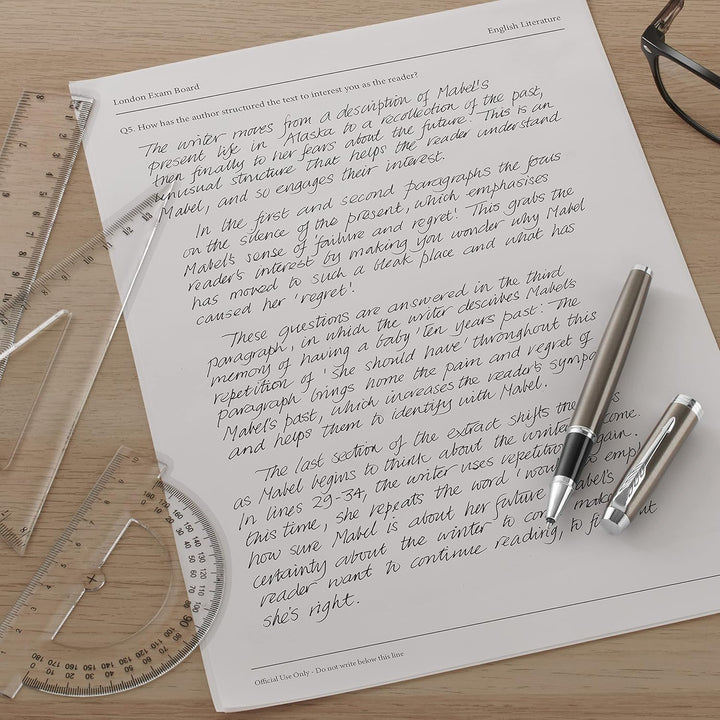 London Exam Board
English Literature
Q5. How has the author structured the text to interest you as the reader?
The writer moves from a description of Mabel's
present life in Alaska to a recollection of the past,
then finally to her fears about the future. This is an
unusual structure that helps the reader understand
Mabel, and so engages their interest.
In the first and second paragraphs the focus
on the silence of the present, which emphasises
Mabel's sense of 'failure and regret'. This grabs the
reader's interest by making you wonder why Mabel
has moved to such a bleak place and what has
caused her 'regret'.
These questions are answered in the third
paragraph, in which the writer describes Mabel's
memory of having a baby 'ten years past'. The
repetition of 'she should have' throughout this
paragraph brings home the pain and regret of
Mabel's past, which increases the reader's
and helps them to identify with Mabel.
The last section of the extract shifts
as Mabel begins to think about the
In lines 29-34, the writer uses
this time, she repeats the word
how sure Mabel is about her future
certainty about the winter to
reader want to continue reading, to
she's right.
Official Use Only - Do not write below this line